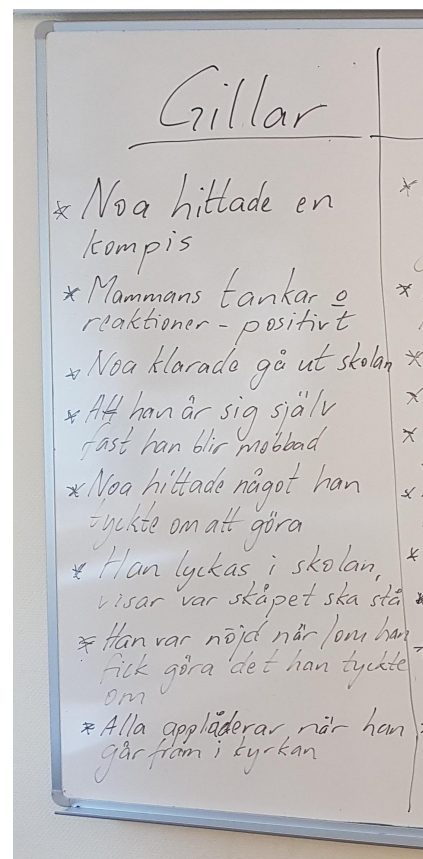 Gillar
* Noa hittade en
kompis
* Mammans tankar o
reaktioner - positivt
* Noa klarade gå ut skolan
* Att han är sig själv
fast han blir mobbad
* Noa hittade något han
tyckte om att göra
* Han lyckas i skolan,
visar var skåpet ska stå
* Han var nöjd när/om han
fick göra det han tyckte
om
* Alla applåderar när han
går fram i kyrkan